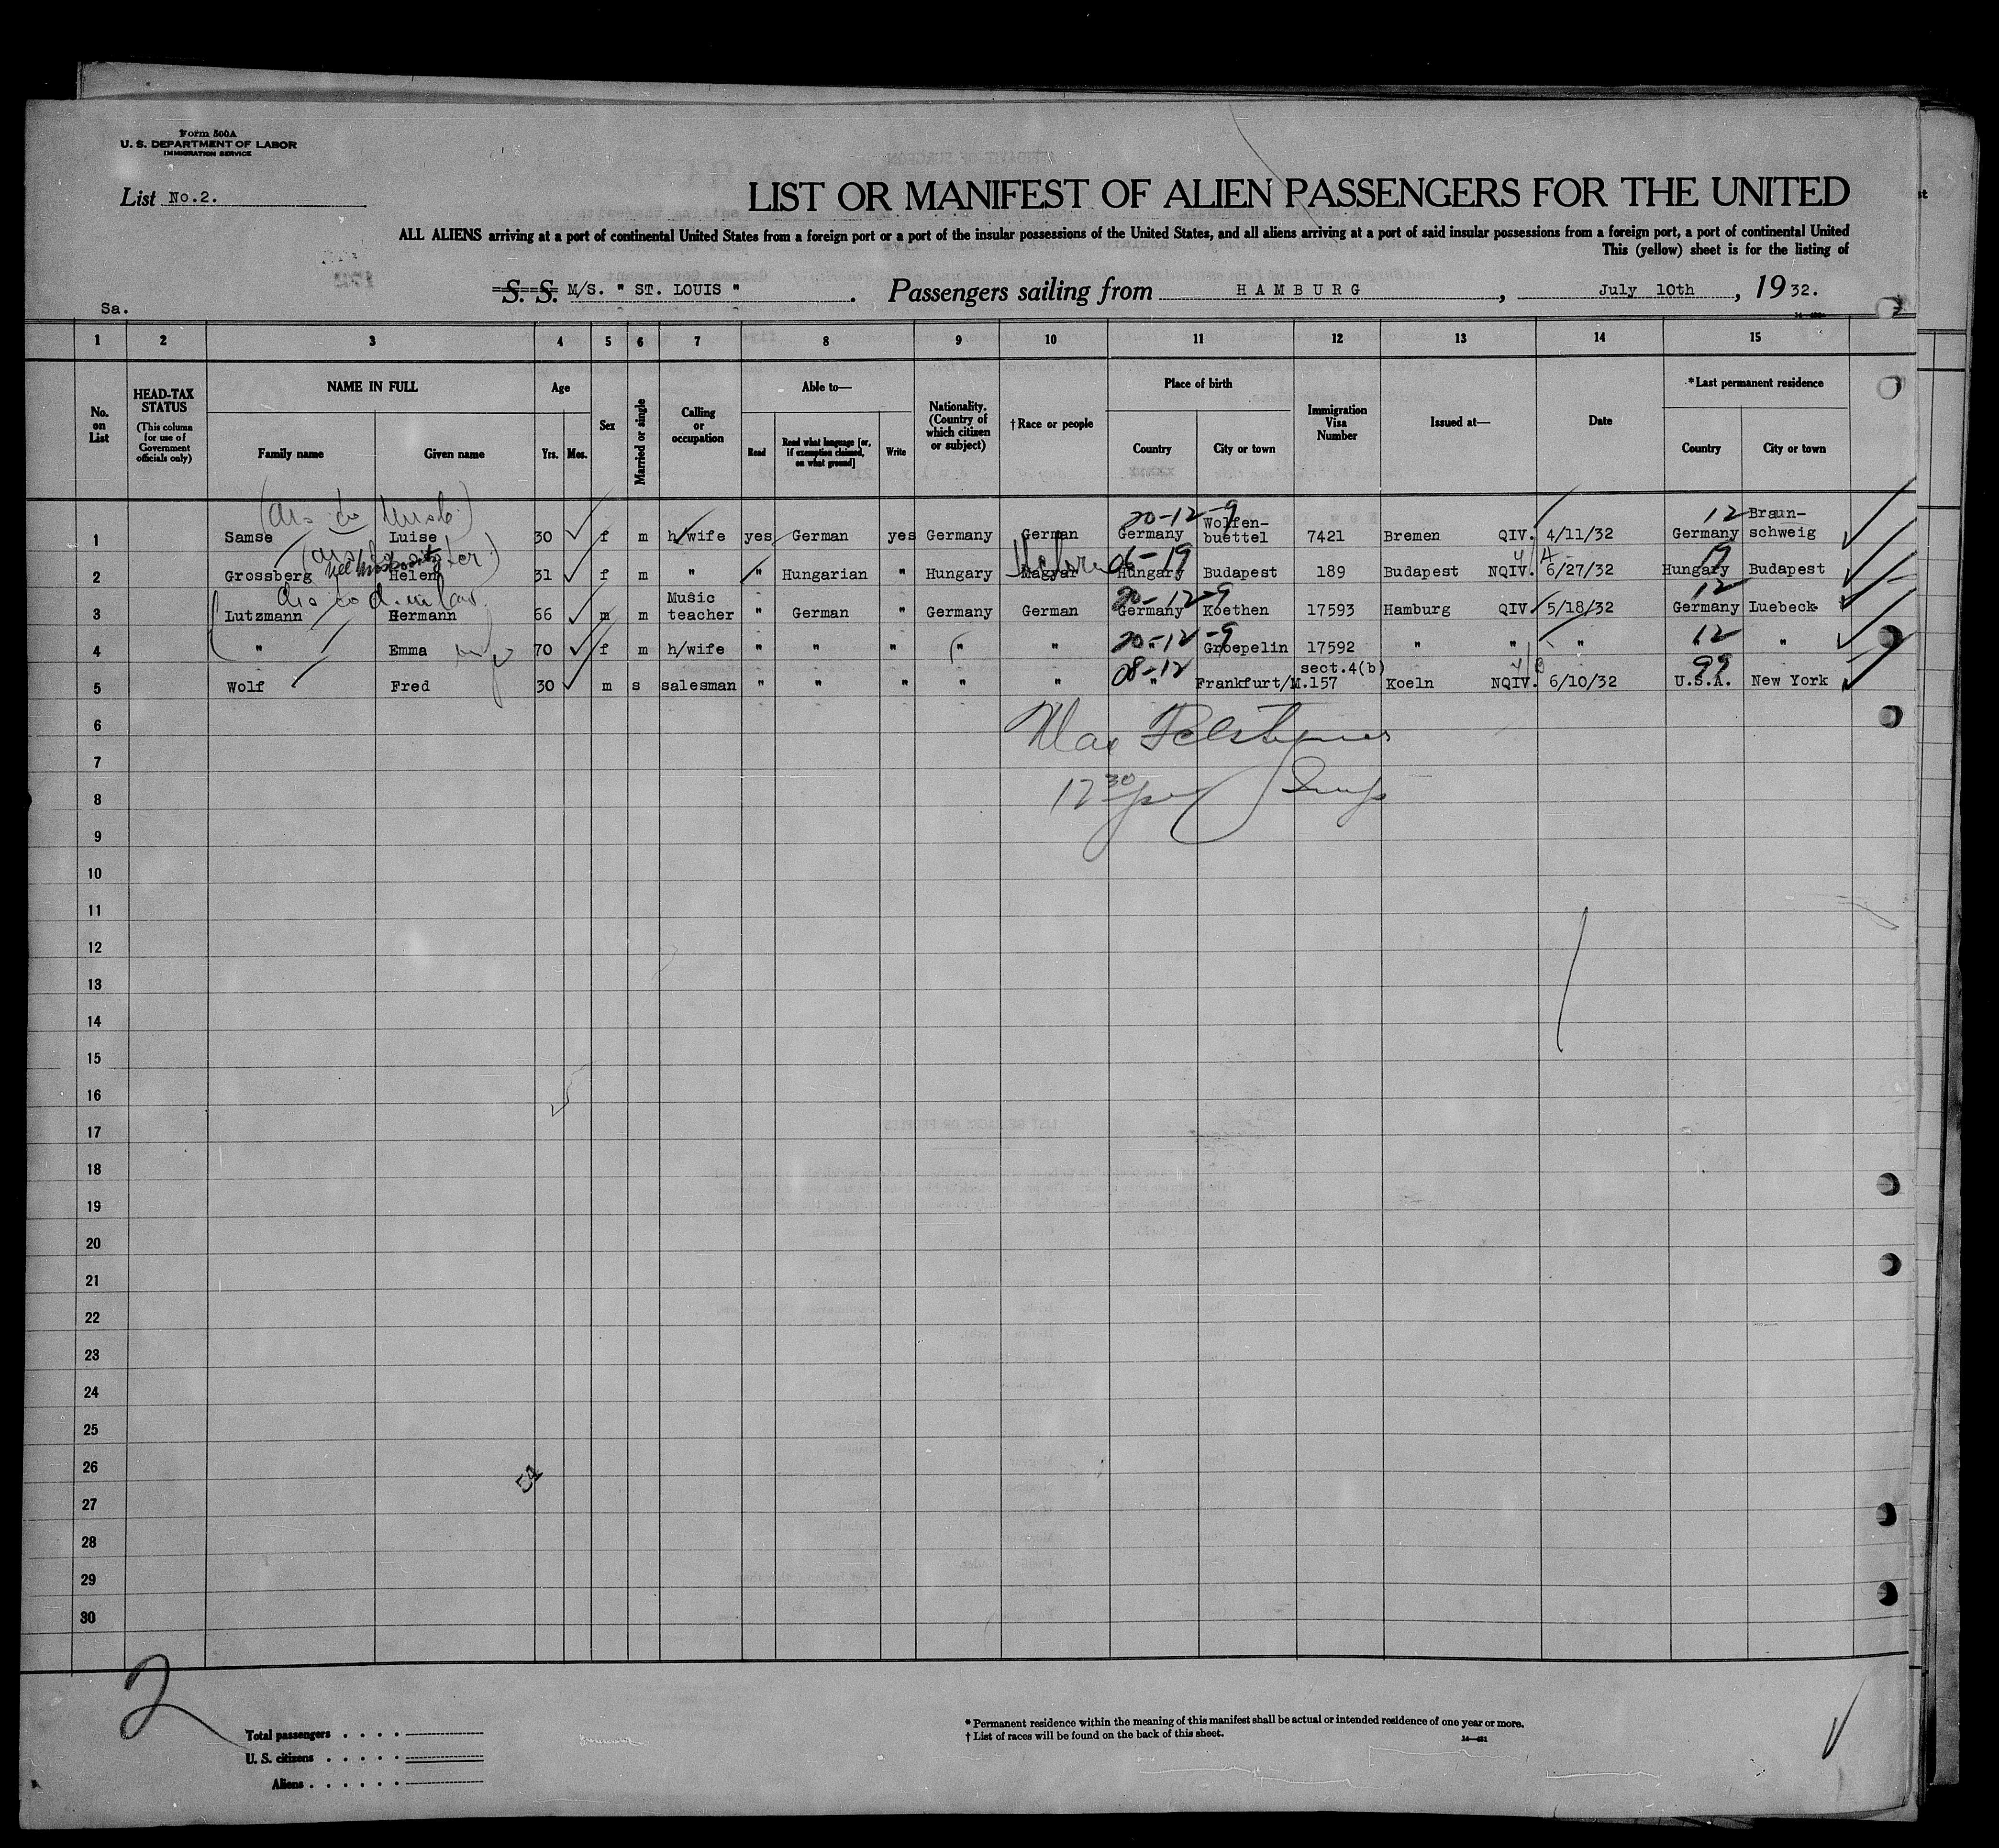 Form 500A
U. S. DEPARTMENT OF LABOR
IMMIGRATION SERVICE
List No.2.
LIST OR MANIFEST OF ALIEN PASSENGERS FOR THE UNITED
ALL ALIENS arriving at a port of continental United States from a foreign port or a port of the insular possessions of the United States, and all aliens arriving at a port of said insular possessions from a foreign port, a port of continental United
This (yellow) sheet is for the listing of
S. S. M/S. " ST. LOUIS " . Passengers sailing from HAMBURG , July 10th , 1932.
Sa.
1 2 3 4 5 6 7 8 9 10 11 12 13 14 15
No. on List
HEAD-TAX STATUS (This column for use of Government officials only)
NAME IN FULL
Family name Given name
Age
Yrs. Mos.
Sex
Married or single
Calling or occupation
Able to—
Read Read what language [or, if exemption claimed, on what ground] Write
Nationality. (Country of which citizen or subject)
†Race or people
Place of birth
Country City or town
Immigration Visa Number
Issued at—
Date
*Last permanent residence
Country City or town
20-12-9 12
1 Samse Luise 30 f m h/wife yes German yes Germany German Germany Wolfen-buettel 7421 Bremen QIV. 4/11/32 Germany Braun-schweig
Hebrew 06-19 19
2 Grossberg Helen 31 f m " " Hungarian " Hungary Magyar Hungary Budapest 189 Budapest NQIV. 6/27/32 Hungary Budapest
20-12-9 12
3 Lutzmann Hermann 66 m m Music teacher " German " Germany German Germany Koethen 17593 Hamburg QIV 5/18/32 Germany Luebeck
20-12-9 12
4 " Emma 70 f m h/wife " " " " " Groepelin 17592 " " " "
08-12 99
5 Wolf Fred 30 m s salesman " " " " " " Frankfurt/M. sect.4(b) 157 Koeln NQIV. 6/10/32 U.S.A. New York
6
7
8
9
10
11
12
13
14
15
16
17
18
19
20
21
22
23
24
25
26
27
28
29
30
54
2
Total passengers
U. S. citizens
Aliens
* Permanent residence within the meaning of this manifest shall be actual or intended residence of one year or more.
† List of races will be found on the back of this sheet.